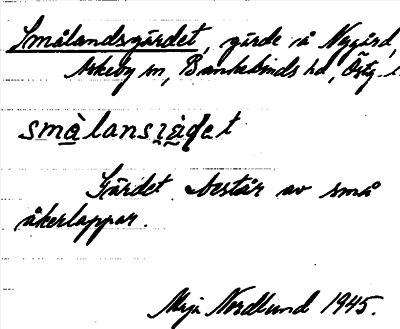 Smålandsgärdet, gärde å Nygård,
Askeby sn, Bankekinds hd, Östg. l.
Gärdet består av små
åkerlappar.
Maja Nordlund 1945.